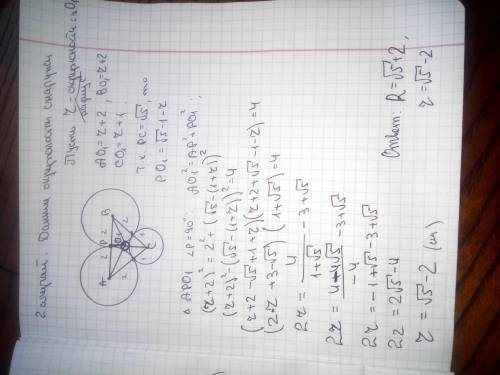 2 случай Данная окружности снаружи
Пусть r - окружности с ц. O₁
радиус
AO₁ = r+2, BO₁ = r+2
CO₁ = r+1
Т.к. PC = √5, то
PO₁ = √5 - 1 - r
A 2 P 2 B
2 2
1 1
C
Δ APO₁ ∠P = 90° AO₁² = AP² + PO₁²;
(r+2)² = 2² + (√5 - (1+r))²
(r+2)² - (√5 - (1+r))² = 4
(r+2 - √5 + 1 + r)(r+2 + √5 - 1 - r) = 4
(2r + 3 - √5)(1 + √5) = 4
2r = 4/(1+√5) - 3 + √5
2r = (4 - 4√5)/(-4) - 3 + √5
2r = -1 + √5 - 3 + √5
2r = 2√5 - 4
r = √5 - 2 (см)
Ответ: R = √5 + 2,
r = √5 - 2